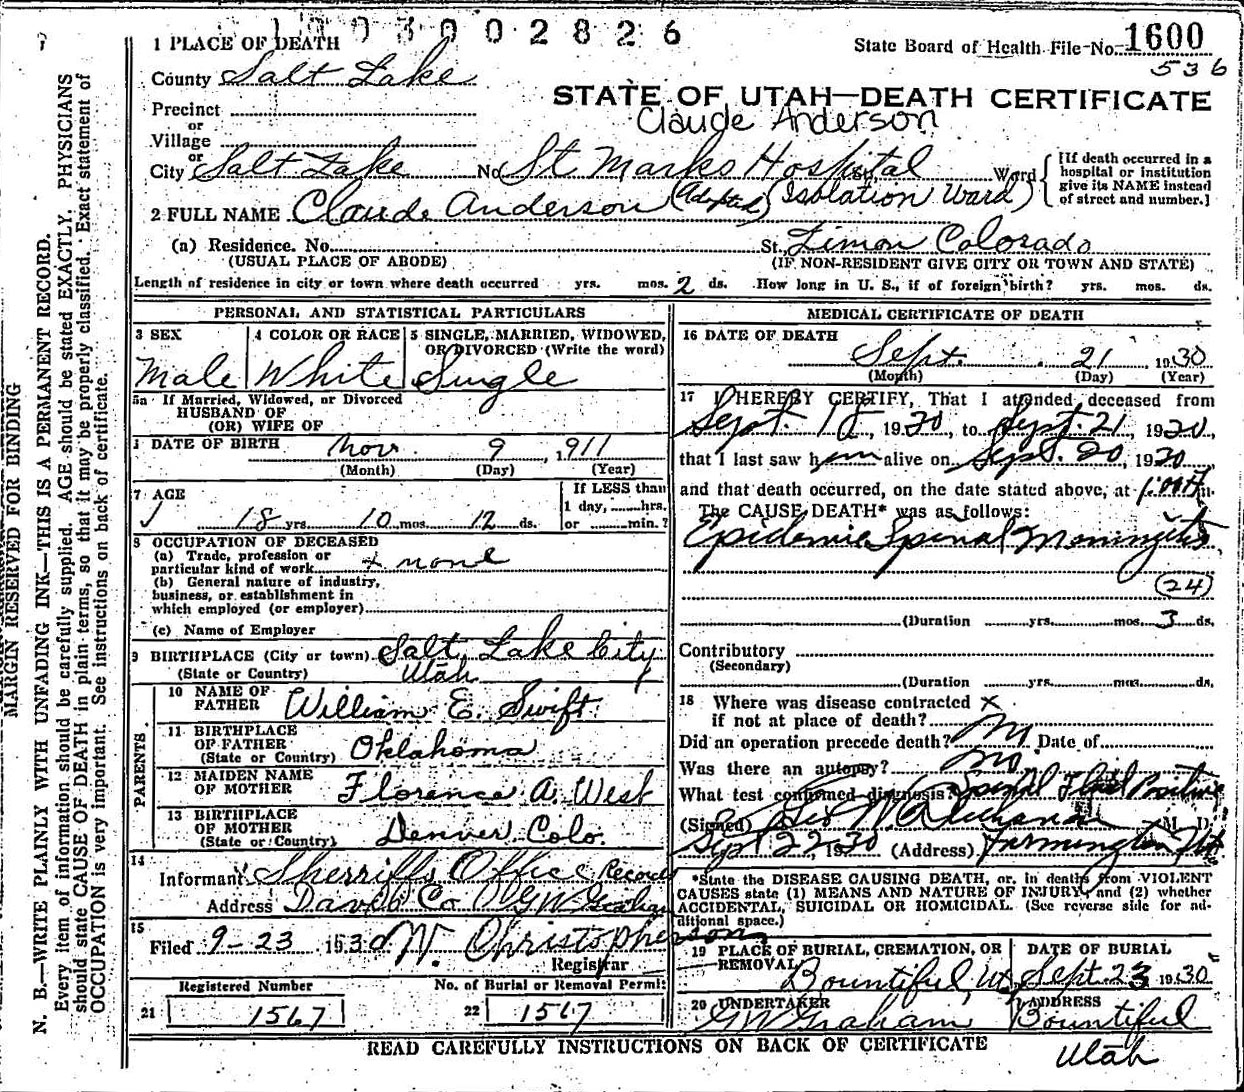 1003002826
State Board of Health File No. 1600
536
1 PLACE OF DEATH
County Salt Lake
STATE OF UTAH—DEATH CERTIFICATE
Claude Anderson
Precinct
or
Village
or
City Salt Lake No. St Marks Hospital Ward
[If death occurred in a hospital or institution give its NAME instead of street and number.]
2 FULL NAME Claude Anderson (Adopted) (Isolation Ward)
(a) Residence. No. St., Limon Colorado
(USUAL PLACE OF ABODE) (IF NON-RESIDENT GIVE CITY OR TOWN AND STATE)
Length of residence in city or town where death occurred yrs. mos. 2 ds. How long in U. S., if of foreign birth? yrs. mos. ds.
PERSONAL AND STATISTICAL PARTICULARS
3 SEX 4 COLOR OR RACE 5 SINGLE, MARRIED, WIDOWED,
OR DIVORCED (Write the word)
Male White Single
5a If Married, Widowed, or Divorced
HUSBAND OF
(OR) WIFE OF
DATE OF BIRTH Nov. 9, 1911
(Month) (Day) (Year)
7 AGE If LESS than
1 day, hrs.
18 yrs 10 mos. 12 ds. or min.?
8 OCCUPATION OF DECEASED
(a) Trade, profession or
particular kind of work x none
(b) General nature of industry,
business, or establishment in
which employed (or employer)
(c) Name of Employer
9 BIRTHPLACE (City or town) Salt Lake City
(State or Country) Utah
PARENTS.
10 NAME OF
FATHER William E. Swift
11 BIRTHPLACE
OF FATHER
(State or Country) Oklahoma
12 MAIDEN NAME
OF MOTHER Florence A. West
13 BIRTHPLACE
OF MOTHER
(State or Country) Denver, Colo.
14
Informant Sherriffs Office Record
Address Davis Co GW Graham
15
Filed 9-23 1930 W. Christopherson
Registrar
Registered Number No. of Burial or Removal Permit
21 1567 22 1567
MEDICAL CERTIFICATE OF DEATH
16 DATE OF DEATH
Sept. 21, 1930
(Month) (Day) (Year)
17 I HEREBY CERTIFY, That I attended deceased from
Sept. 18, 1930, to Sept. 21, 1930,
that I last saw him alive on Sept. 20, 1930
and that death occurred, on the date stated above, at m.
The CAUSE DEATH* was as follows:
Epidemic Spinal Meningitis
(24)
(Duration yrs. mos. 3 ds.
Contributory
(Secondary)
(Duration yrs. mos. ds.
18 Where was disease contracted x
if not at place of death?
Did an operation precede death? No Date of
Was there an autopsy? No
What test confirmed diagnosis? Spinal Fluid Positive
(Signed) M. D.
Sept 22, 1930 (Address) Farmington Ut
*State the DISEASE CAUSING DEATH, or, in deaths from VIOLENT
CAUSES state (1) MEANS AND NATURE OF INJURY, and (2) whether
ACCIDENTAL, SUICIDAL OR HOMICIDAL. (See reverse side for ad-
ditional space.)
19 PLACE OF BURIAL, CREMATION, OR DATE OF BURIAL
REMOVAL
Bountiful, Ut Sept 23 1930
20 UNDERTAKER ADDRESS
GW Graham Bountiful
Utah
READ CAREFULLY INSTRUCTIONS ON BACK OF CERTIFICATE
MARGIN RESERVED FOR BINDING
N. B.—WRITE PLAINLY WITH UNFADING INK—THIS IS A PERMANENT RECORD.
Every item of information should be carefully supplied. AGE should be stated EXACTLY. PHYSICIANS
should state CAUSE OF DEATH in plain terms, so that it may be properly classified. Exact statement of
OCCUPATION is very important. See instructions on back of certificate.